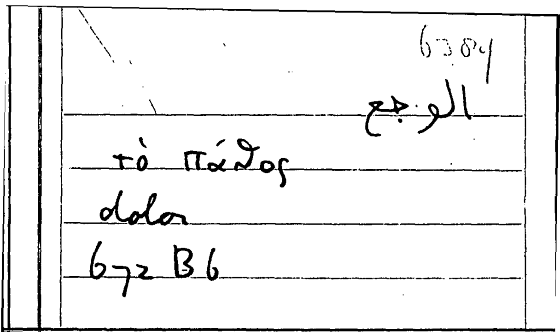 6384
الوجع
τὸ πάθος
dolor
672 B 6